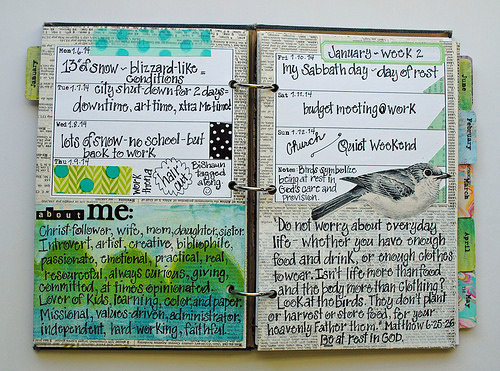 January
Mon 1.6.14
13" of snow - blizzard-like =
conditions
Tue 1.7.14 city shut down for 2 days=
downtime, art time, xtra Me time!
Wed 1.8.14
lots of snow - no school - but
back to work
Thu 1.9.14
work
media
hair
cut
BiShaun
tagged
along
about me:
Christ follower, wife, mom, daughter, sister.
Introvert, artist, creative, bibliophile,
passionate, emotional, practical, real,
resourceful, always curious, giving,
committed, at times opinionated.
Lover of kids, learning, color, and paper.
Missional, values-driven, administrator,
independent, hard-working, faithful.
January - week 2
Fri 1.10.14
my Sabbath day - day of rest
Sat 1.11.14
budget meeting @ work
Sun 1.12.14
Church / Quiet Weekend
Notes: Birds symbolize
being at rest in
God's care and
Provision.
"Do not worry about everyday
life - whether you have enough
food and drink, or enough clothes
to wear. Isn't life more than food
and the body more than clothing?
Look at the Birds. They don't plant
or harvest or store food, for your
heavenly Father them." Matthew 6:25-26
Be at rest in GOD.
June
February
March
April